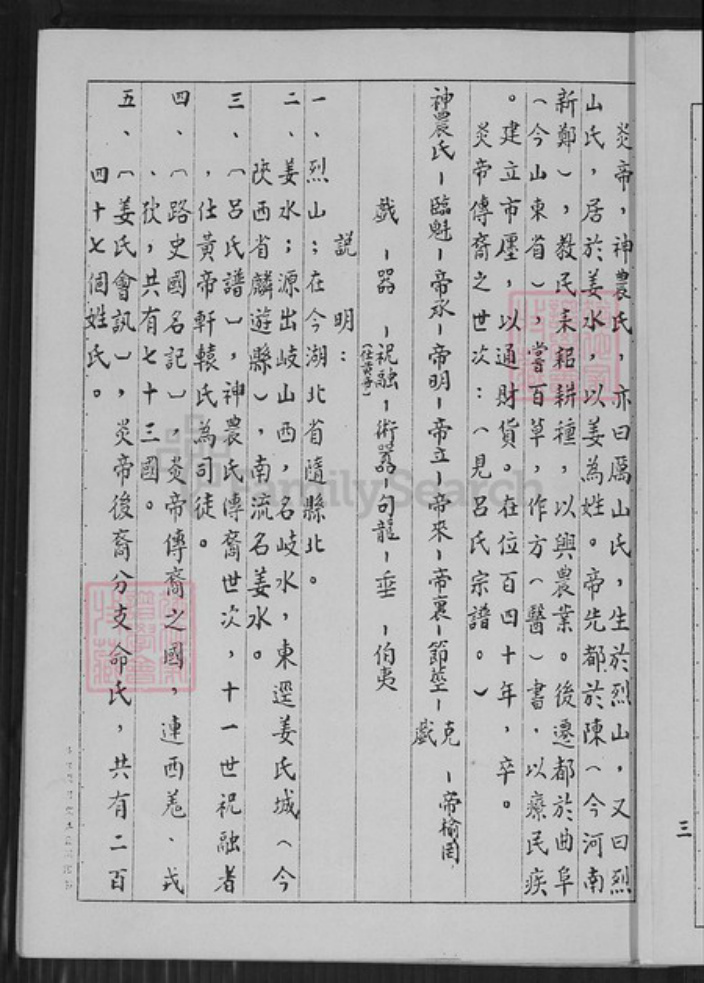 炎帝，神農氏，亦曰厲山氏，生於烈山，又曰烈
山氏，居於姜水，以姜為姓。帝先都於陳（今河南
新鄭），教民耒耜耕種，以興農業。後遷都於曲阜
（今山東省），嘗百草，作方（醫）書，以療民疾
。建立市廛，以通財貨。在位百四十年，卒。
炎帝傳裔之世次：（見呂氏宗譜。）
神農氏－臨魁－帝承－帝明－帝立－帝來－帝裏－節莖－克 －帝榆罔
戲
戲－器－祝融－術器－句龍－垂－伯夷
說明：
一、烈山；在今湖北省隨縣北。
二、姜水；源出岐山西，名岐水，東逕姜氏城（今
陝西省麟遊縣），南流名姜水。
三、（呂氏譜），神農氏傳裔世次，十一世祝融者
，仕黃帝軒轅氏為司徒。
四、（路史國名記），炎帝傳裔之國，連西羌、戎
、狄，共有七十三國。
五、（姜氏會訊），炎帝後裔分支命氏，共有二百
四十七個姓氏。
三
FamilySearch